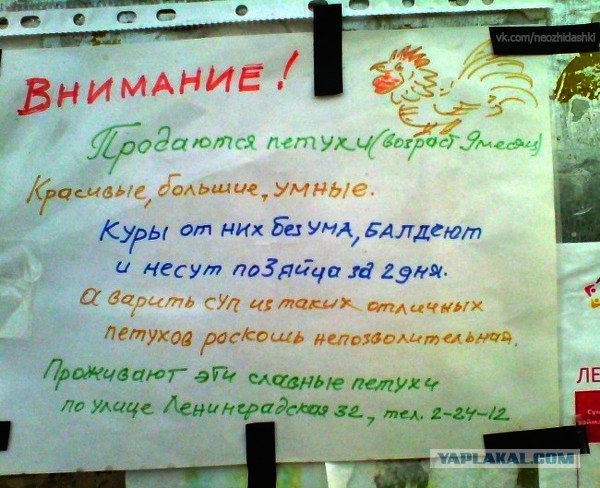 vk.com/neozhidashki
ВНИМАНИЕ!
Продаются петухи (возраст 9 месяц)
Красивые, большие, умные.
Куры от них без УМА, БАЛДЕЮТ
и несут по 3 яйца за 2 дня.
А варить суп из таких отличных
петухов роскошь непозволительная.
Проживают эти славные петухи
по улице Ленинградская 32, тел. 2-24-12
ЛЕ
YAPLAKAL.COM